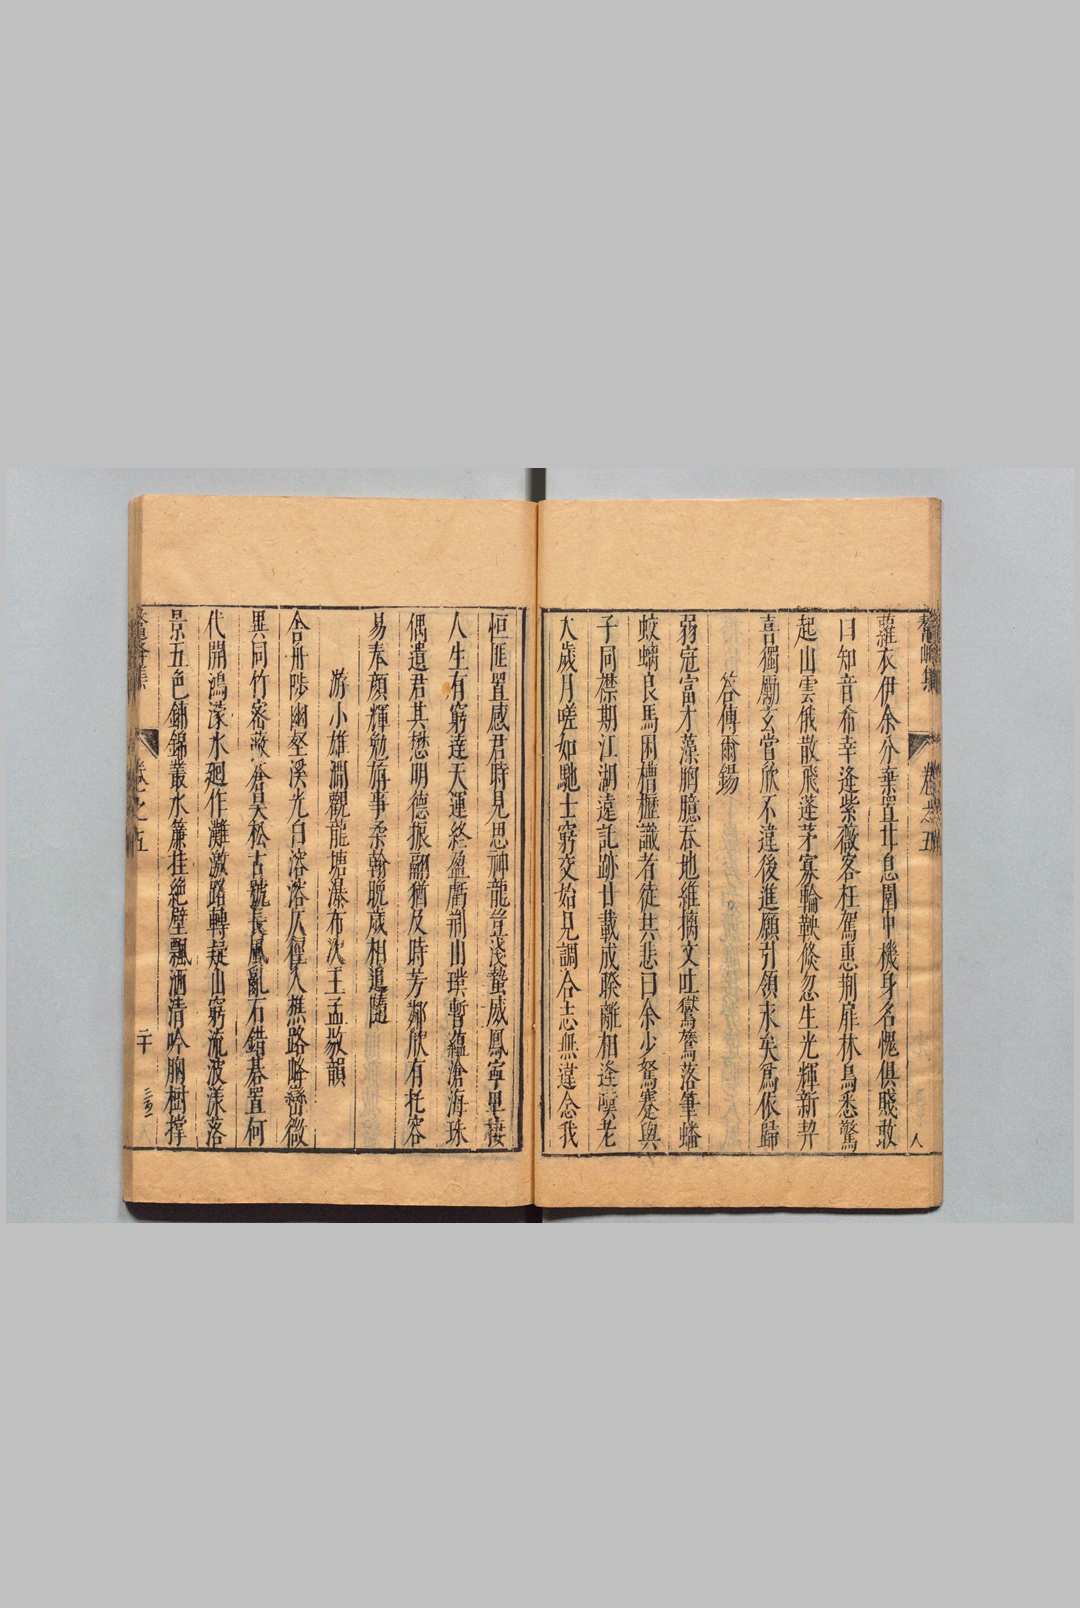 蘿衣伊余分棄置甘息圜中機身名愧俱賤敢
曰知音希幸逢紫薇客枉駕惠荆扉林鳥悉驚
起山雲俄散飛蓬茅寡輪鞅倐忽生光輝新羿
喜獨勵玄嘗欣不違後進願引領永矣爲依歸
答傅爾錫
弱冠富才藻胸臆吞地維摛文吐鸑鷟落筆蟠
蛟螭良馬困槽櫪識者徒共悲曰余少駑蹇與
子同襟期江湖遠託跡廿載成睽離相逢嘆老
大歲月嗟如馳士窮交始見調合志無違念我
恒匪置感君時見思神龍豈淺蟄威鳳寧卑棲
人生有窮達天運終盈虧荊山璞暫蘊滄海珠
偶遺君其懋明德振翮猶及時芳鄰欣有托容
易奉顔輝勉旃事柔翰晚歲相追隨
游小雄淵觀龍塘瀑布次王孟敭韻
舍舟陟幽壑溪光白溶溶仄徑入樵路峰巒微
異同竹密蔽蒼昊松古號長風亂石錯碁置何
代開鴻濛水廻作灘激路轉疑山窮流波漾落
景五色鋪錦叢水簾挂絶壁飄洒清吟胸樹撑
卷之五
二十